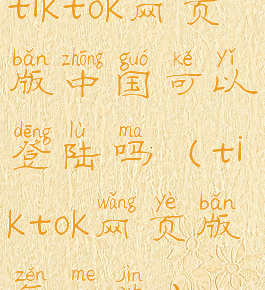 tiktok网页
bǎn zhōng guó kě yǐ
版中国可以
dēng lù ma
登陆吗（ti
wǎng yè bǎn
ktok网页版
zěn me jìn